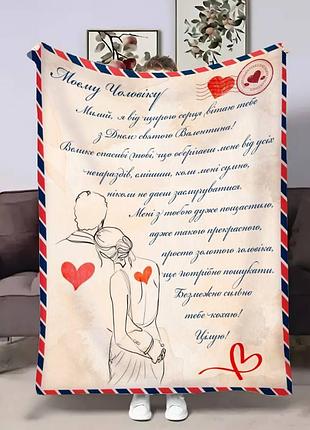 Моєму Чоловіку
Милий, я від щирого серця вітаю тебе
з Днем святого Валентина!
Велике спасибі тобі, що оберігаєш мене від усіх
негараздів, смішиш, коли мені сумно,
ніколи не даєш засмучуватися.
Мені з тобою дуже пощастило,
адже такого прекрасного,
просто золотого чоловіка,
ще потрібно пошукати.
Безмежно сильно
тебе кохаю!
Цілую!